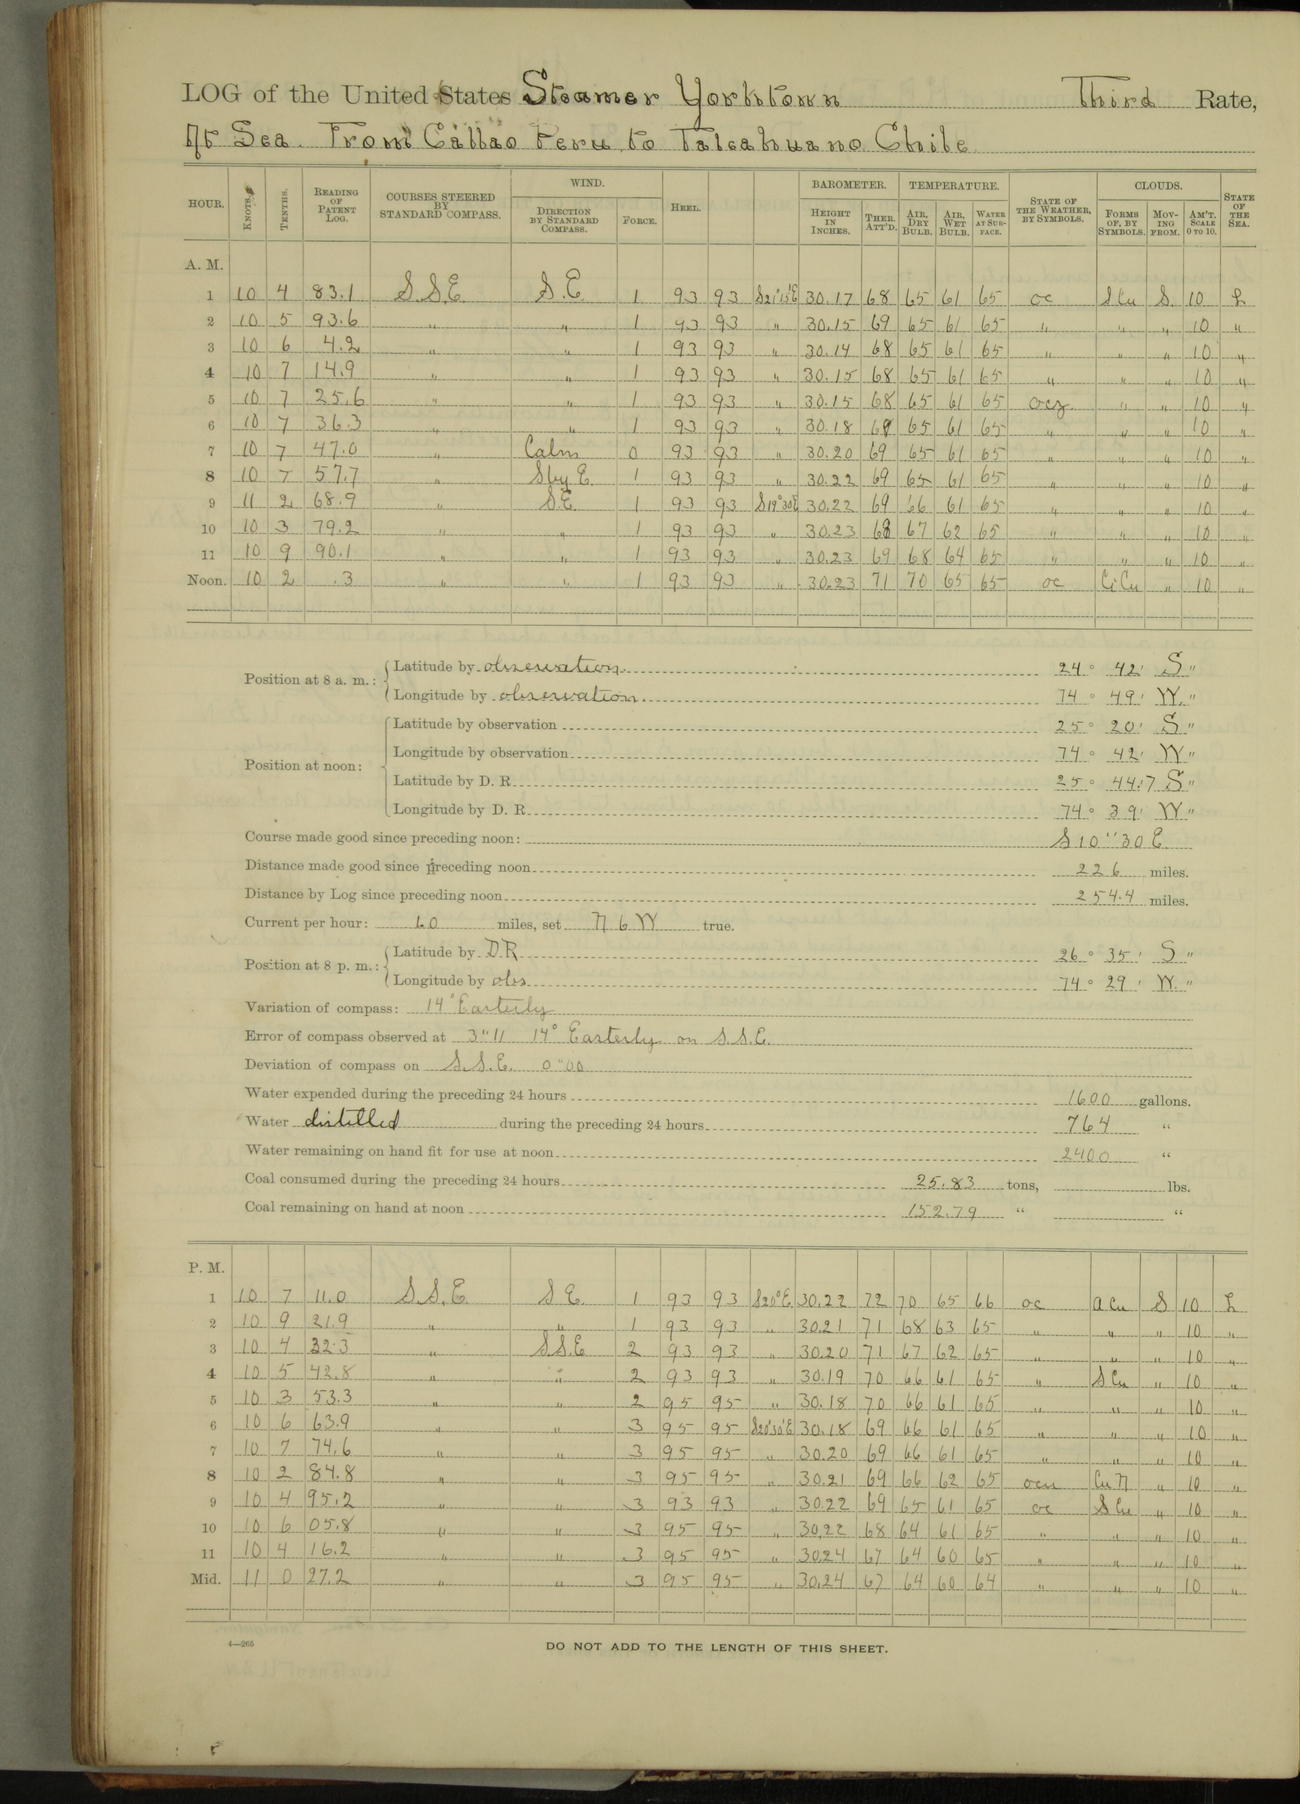 LOG of the United States Steamer Yorktown Third Rate,
At Sea. From Callao Peru to Talcahuano Chile
HOUR. KNOTS. TENTHS. READING OF PATENT LOG. COURSES STEERED BY STANDARD COMPASS. WIND. DIRECTION BY STANDARD COMPASS. FORCE. HEEL. BAROMETER. HEIGHT IN INCHES. THER. ATT'D. TEMPERATURE. AIR, DRY BULB. AIR, WET BULB. WATER AT SURFACE. STATE OF THE WEATHER, BY SYMBOLS. CLOUDS. FORMS OF, BY SYMBOLS. MOVING FROM. AM'T. SCALE 0 TO 10. STATE OF THE SEA.
A. M.
1 10 4 83.1 S.S.E. S.E. 1 93 93 S21°15'E 30.17 68 65 61 65 oc S Cu S. 10 L
2 10 5 93.6 " " 1 93 93 " 30.15 69 65 61 65 " " " 10 "
3 10 6 4.2 " " 1 93 93 " 30.14 68 65 61 65 " " " 10 "
4 10 7 14.9 " " 1 93 93 " 30.15 68 65 61 65 " " " 10 "
5 10 7 25.6 " " 1 93 93 " 30.15 68 65 61 65 ocz " " 10 "
6 10 7 36.3 " " 1 93 93 " 30.18 68 65 61 65 " " " 10 "
7 10 7 47.0 " Calm 0 93 93 " 30.20 69 65 61 65 " " " 10 "
8 10 7 57.7 " S by E. 1 93 93 " 30.22 69 65 61 65 " " " 10 "
9 11 2 68.9 " S.E. 1 93 93 S19°30'E 30.22 69 66 61 65 " " " 10 "
10 10 3 79.2 " " 1 93 93 " 30.23 68 67 62 65 " " " 10 "
11 10 9 90.1 " " 1 93 93 " 30.23 69 68 64 65 " " " 10 "
Noon. 10 2 .3 " " 1 93 93 " 30.23 71 70 65 65 oc Ci Cu " 10 "
Position at 8 a. m.: Latitude by observation 24° 42' S"
Longitude by observation 74° 49' W."
Position at noon: Latitude by observation 25° 20' S"
Longitude by observation 74° 42' W"
Latitude by D. R. 25° 44.'7 S"
Longitude by D. R. 74° 39' W"
Course made good since preceding noon: S 10"30 E
Distance made good since preceding noon 226 miles.
Distance by Log since preceding noon 254.4 miles.
Current per hour: 1.0 miles, set N 6 W true.
Position at 8 p. m.: Latitude by D.R. 26° 35' S"
Longitude by obs 74° 29' W."
Variation of compass: 14° Easterly
Error of compass observed at 3"11 14° Easterly on S.S.E.
Deviation of compass on S.S.E. 0"00
Water expended during the preceding 24 hours 1600 gallons.
Water distilled during the preceding 24 hours 764 "
Water remaining on hand fit for use at noon 2400 "
Coal consumed during the preceding 24 hours 25.83 tons, lbs.
Coal remaining on hand at noon 152.79 " "
P. M.
1 10 7 11.0 S.S.E. S E. 1 93 93 S20°E 30.22 72 70 65 66 oc A Cu S 10 L
2 10 9 21.9 " " 1 93 93 " 30.21 71 68 63 65 " " " 10 "
3 10 4 32.3 " S.S.E 2 93 93 " 30.20 71 67 62 65 " " " 10 "
4 10 5 42.8 " " 2 93 93 " 30.19 70 66 61 65 " S Cu " 10 "
5 10 3 53.3 " " 2 95 95 " 30.18 70 66 61 65 " " " 10 "
6 10 6 63.9 " " 3 95 95 S20°30'E 30.18 69 66 61 65 " " " 10 "
7 10 7 74.6 " " 3 95 95 " 30.20 69 66 61 65 " " " 10 "
8 10 2 84.8 " " 3 95 95 " 30.21 69 66 62 65 ocu Cu N " 10 "
9 10 4 95.2 " " 3 93 93 " 30.22 69 65 61 65 oc S Cu " 10 "
10 10 6 05.8 " " 3 95 95 " 30.22 68 64 61 65 " " " 10 "
11 10 4 16.2 " " 3 95 95 " 30.24 67 64 60 65 " " " 10 "
Mid. 11 0 27.2 " " 3 95 95 " 30.24 67 64 60 64 " " " 10 "
4—265
DO NOT ADD TO THE LENGTH OF THIS SHEET.